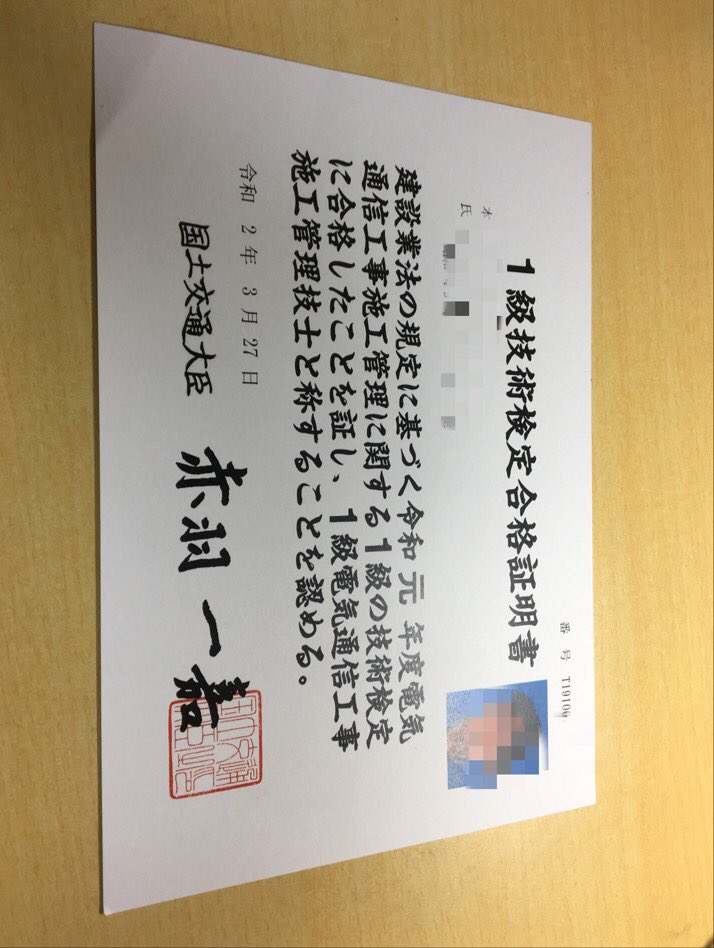 番号 T19100
1級技術検定合格証明書
本
氏
建設業法の規定に基づく令和 元 年度電気
通信工事施工管理に関する1級の技術検定
に合格したことを証し、1級電気通信工事
施工管理技士と称することを認める。
令和 2 年 3 月 27 日
国土交通大臣 赤羽一嘉